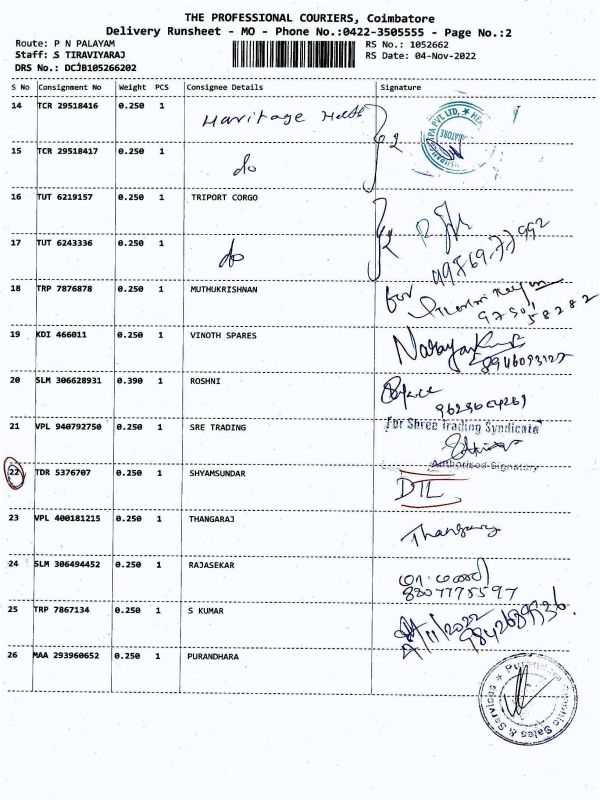 THE PROFESSIONAL COURIERS, Coimbatore
Delivery Runsheet - MO - Phone No.:0422-3505555 - Page No.:2
Route: P N PALAYAM RS No.: 1052662
Staff: S TIRAVIYARAJ RS Date: 04-Nov-2022
DRS No.: DCJB105266202
S No Consignment No Weight PCS Consignee Details Signature
14 TCR 29518416 0.250 1 Havritage
15 TCR 29518417 0.250 1 do 2
16 TUT 6219157 0.250 1 TRIPORT CORGO
17 TUT 6243336 0.250 1 do 2
18 TRP 7876878 0.250 1 MUTHUKRISHNAN for
19 KDI 466011 0.250 1 VINOTH SPARES
20 SLM 306628931 0.390 1 ROSHNI
21 VPL 940792750 0.250 1 SRE TRADING For Shree Trading Syndicate
Authorised Signatory
22 TDR 5376707 0.250 1 SHYAMSUNDAR DTL
23 VPL 400181215 0.250 1 THANGARAJ Thangaraj
24 SLM 306494452 0.250 1 RAJASEKAR
8807775597
25 TRP 7867134 0.250 1 S KUMAR 4/11/2022
26 MAA 293960652 0.250 1 PURANDHARA
Sales & Services